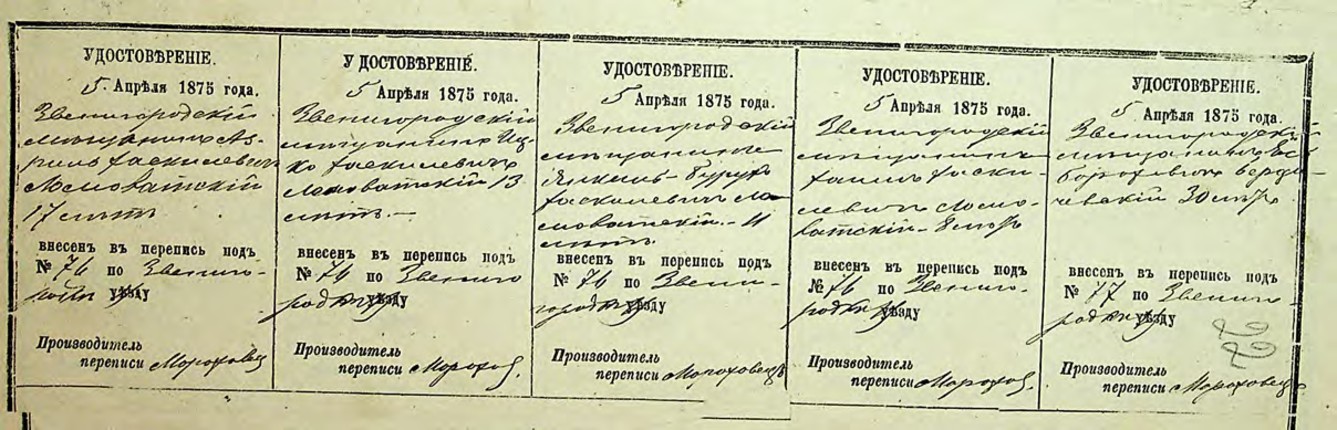 УДОСТОВѢРЕНІЕ.
5 Апрѣля 1875 года.
Звенигородскій
мѣщанинъ Аз-
риль Хаскилевич
Ломоватскій
17 лѣтъ
внесенъ въ перепись подъ
№ 76 по Звениго-
родки уѣзду
Производитель
переписи Мороховец
УДОСТОВѢРЕНІЕ.
5 Апрѣля 1875 года.
Звенигородскій
мѣщанинъ Иц-
ко Хаскилевичъ
Ломоватскій 13
лѣтъ.—
внесенъ въ перепись подъ
№ 76 по Звениго
родкѣ уѣзду
Производитель
переписи Морохов.
УДОСТОВѢРЕНІЕ.
5 Апрѣля 1875 года.
Звенигородскій
мѣщанинъ
Бурух
Хаскилевич Ло-
моватскій – 11
лѣтъ.
внесенъ въ перепись подъ
№ 76 по Звени-
городкѣ уѣзду
Производитель
переписи Мороховецъ
УДОСТОВѢРЕНІЕ.
5 Апрѣля 1875 года.
Звенигородскій
мѣщанинъ
Хаимъ Хаски-
левичъ Ломо-
ватскій – 8 лѣтъ
внесенъ въ перепись подъ
№ 76 по Звениго-
родкѣ уѣзду
Производитель
переписи Морохов.
УДОСТОВѢРЕНІЕ.
5 Апрѣля 1875 года.
Звенигородскій
мѣщанинъ
Борохович Берди-
чевскій 30 лѣтъ
внесенъ въ перепись подъ
№ 77 по Звениго-
родкѣ уѣзду
Производитель
переписи Мороховец